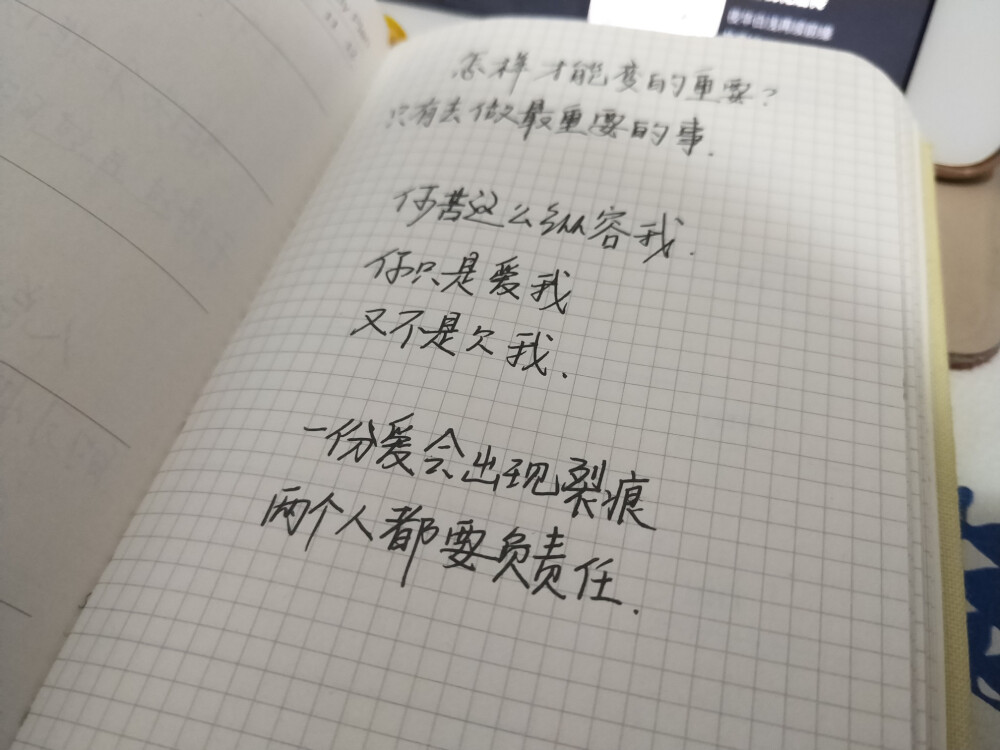 怎样才能变的重要？
只有去做最重要的事.
何苦这么纵容我.
你只是爱我
又不是欠我.
一份爱会出现裂痕
两个人都要负责任.